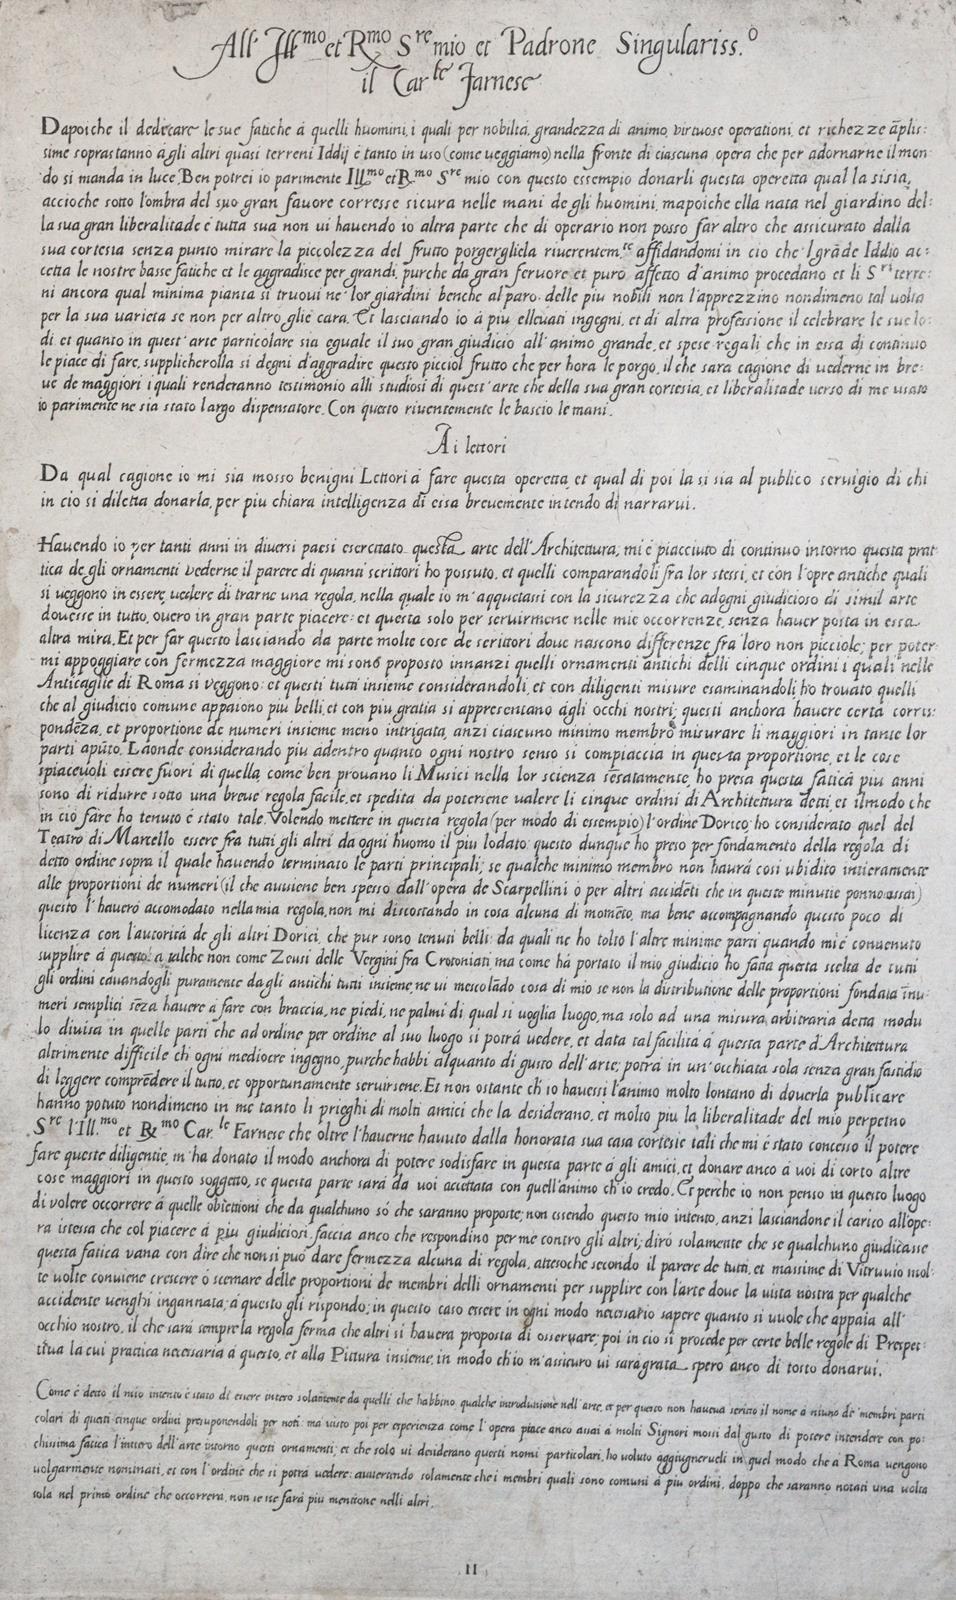 All' Ill.mo et R.mo S.re mio et Padrone Singulariss.o
il Car.le Farnese
Dapoiche il dedicare le sue fatiche à quelli huomini, i quali per nobilità, grandezza di animo, virtuose operationi, et richezze āplis:
sime soprastanno à gli altri quasi terreni Iddij è tanto in uso (come ueggiamo) nella fronte di ciascuna opera che per adornarne il mon
do si manda in luce, Ben potrei io parimente Ill.mo et R.mo S.re mio con questo essempio donarli questa operetta qual la si sia,
accioche sotto l'ombra del suo gran fauore corresse sicura nelle mani de gli huomini, mapoiche ella nata nel giardino del:
la sua gran liberalitade è tutta sua non ui hauendo io altra parte che di operario non posso far altro che assicurato dalla
sua cortesia senza punto mirare la piccolezza del frutto porgergliela riuerentem.te affidandomi in cio che 'l grāde Iddio ac:
cetta le nostre basse fatiche et le aggradisce per grandi, purche da gran feruore et puro affetto d'animo procedano et li S.ri terre:
ni ancora qual minima pianta si truoui ne' lor giardini benche al paro delle piu nobili non l'apprezzino nondimeno tal uolta
per la sua varieta se non per altro glie cara. Et lasciando io à piu elleuati ingegni, et di altra professione il celebrare le sue lo:
di et quanto in quest' arte particolare sia eguale il suo gran giudicio all' animo grande, et spese regali che in essa di continuo
le piace di fare, supplicherolla si degni d'aggradire questo picciol frutto che per hora le porgo, il che sarà cagione di uederne in bre:
ue de maggiori i quali renderanno testimonio alli studiosi di quest' arte che della sua gran cortesia, et liberalitade uerso di me usata
io parimente ne sia stato largo dispensatore. Con questo riuentemente le bascio le mani.
Ai lettori
Da qual cagione io mi sia mosso benigni Lettori à fare questa operetta, et qual di poi la si sia al publico seruigio di chi
in cio si diletta donarla, per piu chiara intelligenza di essa breuemente intendo di narrarui.
Hauendo io per tanti anni in diuersi paesi esercitato questa arte dell' Architettura, mi è piacciuto di continuo intorno questa prat
tica de gli ornamenti vederne il parere di quanti scrittori ho possuto, et quelli comparandoli fra lor stessi, et con l'opre antiche quali
si ueggono in essere, uedere di trarne una regola, nella quale io m' aquetassi con la sicurezza che adogni giudicioso di simil arte
douesse in tutto, ouero in gran parte piacere: et questa solo per seruirmene nelle mie occorrenze, senza hauer posta in essa
altra mira. Et per far questo lasciando da parte molte cose de scrittori doue nascono differenze fra loro non picciole; per poter:
mi appoggiare con fermezza maggiore mi sono proposto innanzi quelli ornamenti antichi delli cinque ordini i quali nelle
Anticaglie di Roma si veggono: et questi tutti insieme considerandoli, et con diligenti misure esaminandoli, ho trouato quelli
che al giudicio comune appaiono piu belli, et con piu gratia si appresentano àgli occhi nostri; questi anchora hauere certa corris:
pondēza, et proportione de numeri insieme meno intrigata, anzi ciascuno minimo membro misurare li maggiori in tante lor
parti apūto. Laonde considerando piu adentro quanto ogni nostro senso si compiaccia in questa proportione, et le cose
spiaceuoli essere fuori di quella, come ben prouano li Musici nella lor scienza sēsatamente, ho presa questa fatica piu anni
sono di ridurre sotto una breue regola facile, et spedita da potersene ualere li cinque ordini di Architettura detti, et il modo che
in ciò fare ho tenuto è stato tale. Volendo mettere in questa regola (per modo di essempio) l'ordine Dorico; ho considerato quel del
Teatro di Marcello essere fra tutti gli altri da ogni huomo il piu lodato: questo dunque ho preso per fondamento della regola di
detto ordine sopra il quale hauendo terminato le parti principali; se qualche minimo membro non haurà cosi ubidito intieramente
alle proportioni de numeri (il che auuiene ben spesso dall' opera de Scarpellini ò per altri accidēti che in queste minutie ponno assai)
questo l' hauerò accomodato nella mia regola, non mi discostando in cosa alcuna di momēto, ma bene accompagnando questo poco di
licenza con l'autorità de gli altri Dorici, che pur sono tenuti belli: da quali ne ho tolto l'altre minime parti quando mi è conuenuto
supplire à questo: a talche non come Zeusi delle Vergini fra Crotoniati ma come hà portato il mio giudicio ho fatta questa scelta de tutti
gli ordini cauandogli puramente dagli antichi tutti insieme, ne ui mescolādo cosa di mio se non la distributione delle proportioni fondata ī nu:
meri semplici sēza hauere à fare con braccia, ne piedi, ne palmi di qual si uoglia luogo, ma solo ad una misura arbitraria detta modu
lo diuisa in quelle parti che ad ordine per ordine al suo luogo si potrà uedere, et data tal facilità à questa parte d'Architettura
altrimente difficile ch' ogni mediocre ingegno, purche habbi alquanto di gusto dell' arte, potrà in un' occhiata sola senza gran fastidio
di leggere comprēdere il tutto, et opportunamente seruirsene. Et non ostante ch' io hauessi l'animo molto lontano di douerla publicare
hanno potuto nondimeno in me tanto li prieghi di molti amici che la desiderano, et molto piu la liberalitade del mio perpetuo
S.re l'Ill.mo et R.mo Car.le Farnese che oltre l'hauerne hauuto dalla honorata sua casa cortesie tali che mi è stato concesso il potere
fare queste diligentie, m'ha donato il modo anchora di potere sodisfare in questa parte à gli amici, et donare anco à uoi di corto altre
cose maggiori in questo soggetto, se questa parte sarà da uoi accettata con quell' animo ch' io credo. Et perche io non penso in questo luogo
di volere occorrere à quelle obiettioni che da qualchuno sò che saranno proposte; non essendo questo mio intento, anzi lasciandone il carico all'ope:
ra istessa che col piacere à piu giudiciosi, faccia anco che respondino per me contro gli altri; dirò solamente che se qualchuno giudicasse
questa fatica vana con dire che non si può dare fermezza alcuna di regola, attesoche secondo il parere de tutti, et massime di Vitruuio mol:
te uolte conuiene crescere ò scemare delle proportioni de membri delli ornamenti per supplire con l'arte doue la uista nostra per qualche
accidente uenghi ingannata; à questo gli rispondo; in questo caso essere in ogni modo necessario sapere quanto si uuole che appaia all'
occhio nostro, il che sarà sempre la regola ferma che altri si hauera proposta di osseruare; poi in cio si procede per certe belle regole di Prespet:
tiua la cui prattica necessaria à questo, et alla Pittura insieme, in modo ch'io m'assicuro ui sarà grata, spero anco di tosto donarui.
Come è detto il mio intento è stato di essere inteso solamente da quelli che habbino qualche introdutione nell' arte, et per questo non haueua scritto il nome à niuno de' membri parti
colari di questi cinque ordini presuponendoli per noti: ma uisto poi per esperienza come l'opera piace anco assai à molti Signori mossi dal gusto di potere intendere con po:
chissima fatica l'intiero dell' arte intorno questi ornamenti; et che solo ui desiderano questi nomi particolari, ho uoluto aggiugnerueli in quel modo che à Roma uengono
uolgarmente nominati, et con l'ordine che si potrà uedere: auuertendo solamente che i membri quali sono comuni à piu ordini, doppo che saranno notati una uolta
sola nel primo ordine che occorrera, non se ne farà piu mentione nelli altri.
II